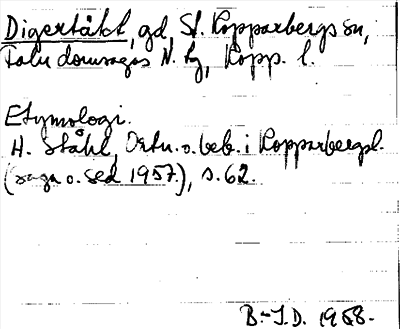 Digertäkt, gd, St. Kopparbergs sn,
Falu domsagas N. tg, Kopp. l.
Etymologi.
H. Ståhl, Ortn. o. beb. i Kopparbergsl.
(Saga o. sed 1957), s. 62.
B.-I.D. 1968.